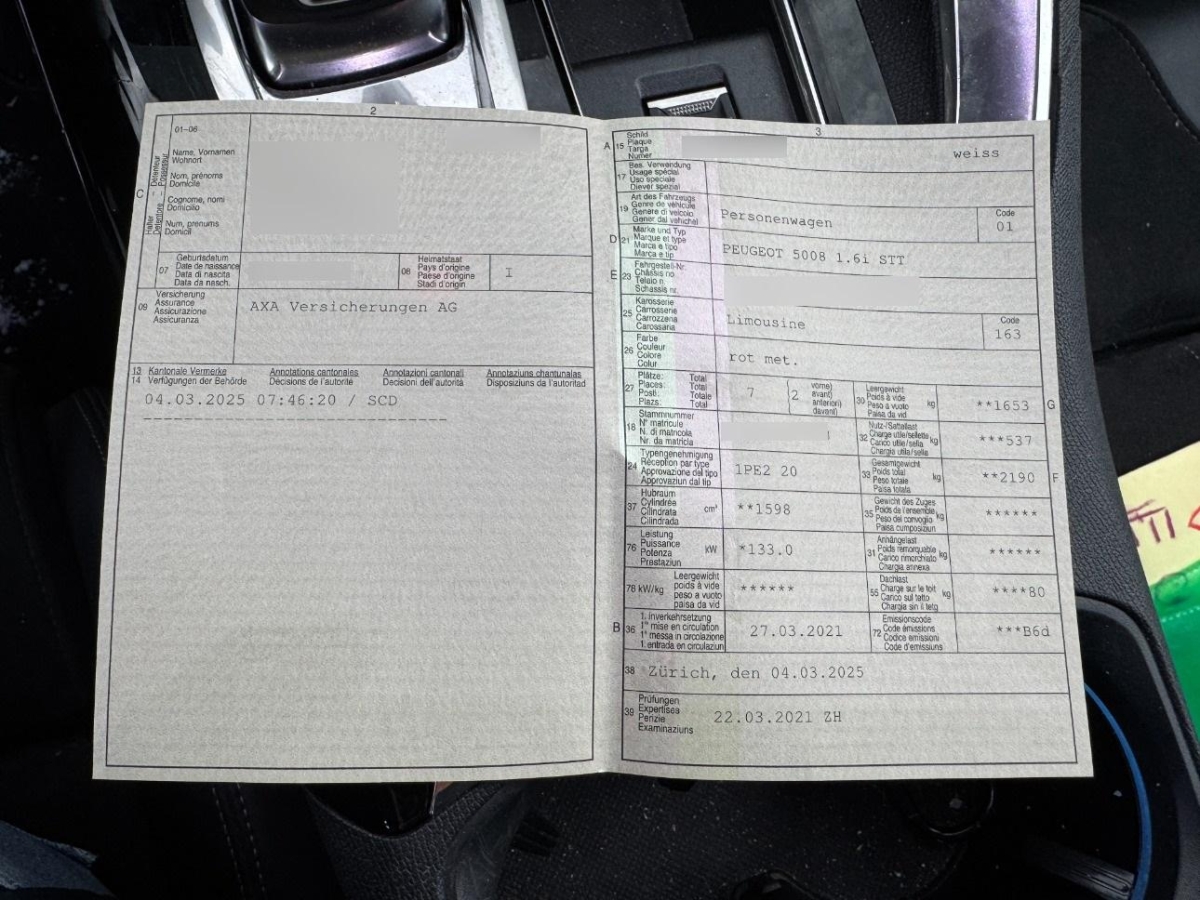 2
01-06
Name, Vornamen
Wohnort
Nom, prénoms
Domicile
Cognome, nomi
Domicilio
Num, prenums
Domicil
C
Halter Détenteur
Detentore Possessur
07
Geburtsdatum
Date de naissance
Data di nascita
Data da nasch.
08
Heimatstaat
Pays d'origine
Paese d'origine
Stadi d'origin
I
09
Versicherung
Assurance
Assicurazione
Assicuranza
AXA Versicherungen AG
13 Kantonale Vermerke Annotations cantonales Annotazioni cantonali Annotaziuns chantunalas
14 Verfügungen der Behörde Décisions de l'autorité Decisioni dell'autorità Disposiziuns da l'autoritad
04.03.2025 07:46:20 / SCD
3
A 15
Schild
Plaque
Targa
Numer
weiss
17
Bes. Verwendung
Usage spécial
Uso speciale
Diever spezial
19
Art des Fahrzeugs
Genre de véhicule
Genere di veicolo
Gener dal vehichel
Personenwagen
Code
01
D 21
Marke und Typ
Marque et type
Marca e tipo
Marca e tip
PEUGEOT 5008 1.6i STT
E 23
Fahrgestell-Nr.
Châssis no
Telaio n.
Schassis nr.
25
Karosserie
Carrosserie
Carrozzeria
Carossaria
Limousine
Code
163
26
Farbe
Couleur
Colore
Colur
rot met.
27
Plätze: Total
Places: Total
Posti: Totale
Plazs: Total
7
2
vorne)
avant)
anteriori)
davant)
30
Leergewicht
Poids à vide
Peso a vuoto
Paisa da vid
kg
**1653
G
18
Stammnummer
N° matricule
N. di matricola
Nr. da matricla
32
Nutz-/Sattellast
Charge utile/sellette
Carico utile/sella
Chargia utila/sella
kg
***537
24
Typengenehmigung
Réception par type
Approvazione del tipo
Approvaziun dal tip
1PE2 20
33
Gesamtgewicht
Poids total
Peso totale
Paisa totala
kg
**2190
F
37
Hubraum
Cylindrée
Cilindrata
Cilindrada
cm³
**1598
35
Gewicht des Zuges
Poids de l'ensemble
Peso del convoglio
Paisa cumposiziun
kg
******
76
Leistung
Puissance
Potenza
Prestaziun
kW
*133.0
31
Anhängelast
Poids remorquable
Carico rimorchiato
Chargia annexa
kg
******
78 kW/kg
Leergewicht
poids à vide
peso a vuoto
paisa da vid
******
55
Dachlast
Charge sur le toit
Carico sul tetto
Chargia sin il tetg
kg
****80
B 36
1. Inverkehrsetzung
1re mise en circulation
1a messa in circolazione
1. entrada en circulaziun
27.03.2021
72
Emissionscode
Code émissions
Codice emissioni
Code d'emissiuns
***B6d
38 Zürich, den 04.03.2025
39
Prüfungen
Expertises
Perizie
Examinaziuns
22.03.2021 ZH